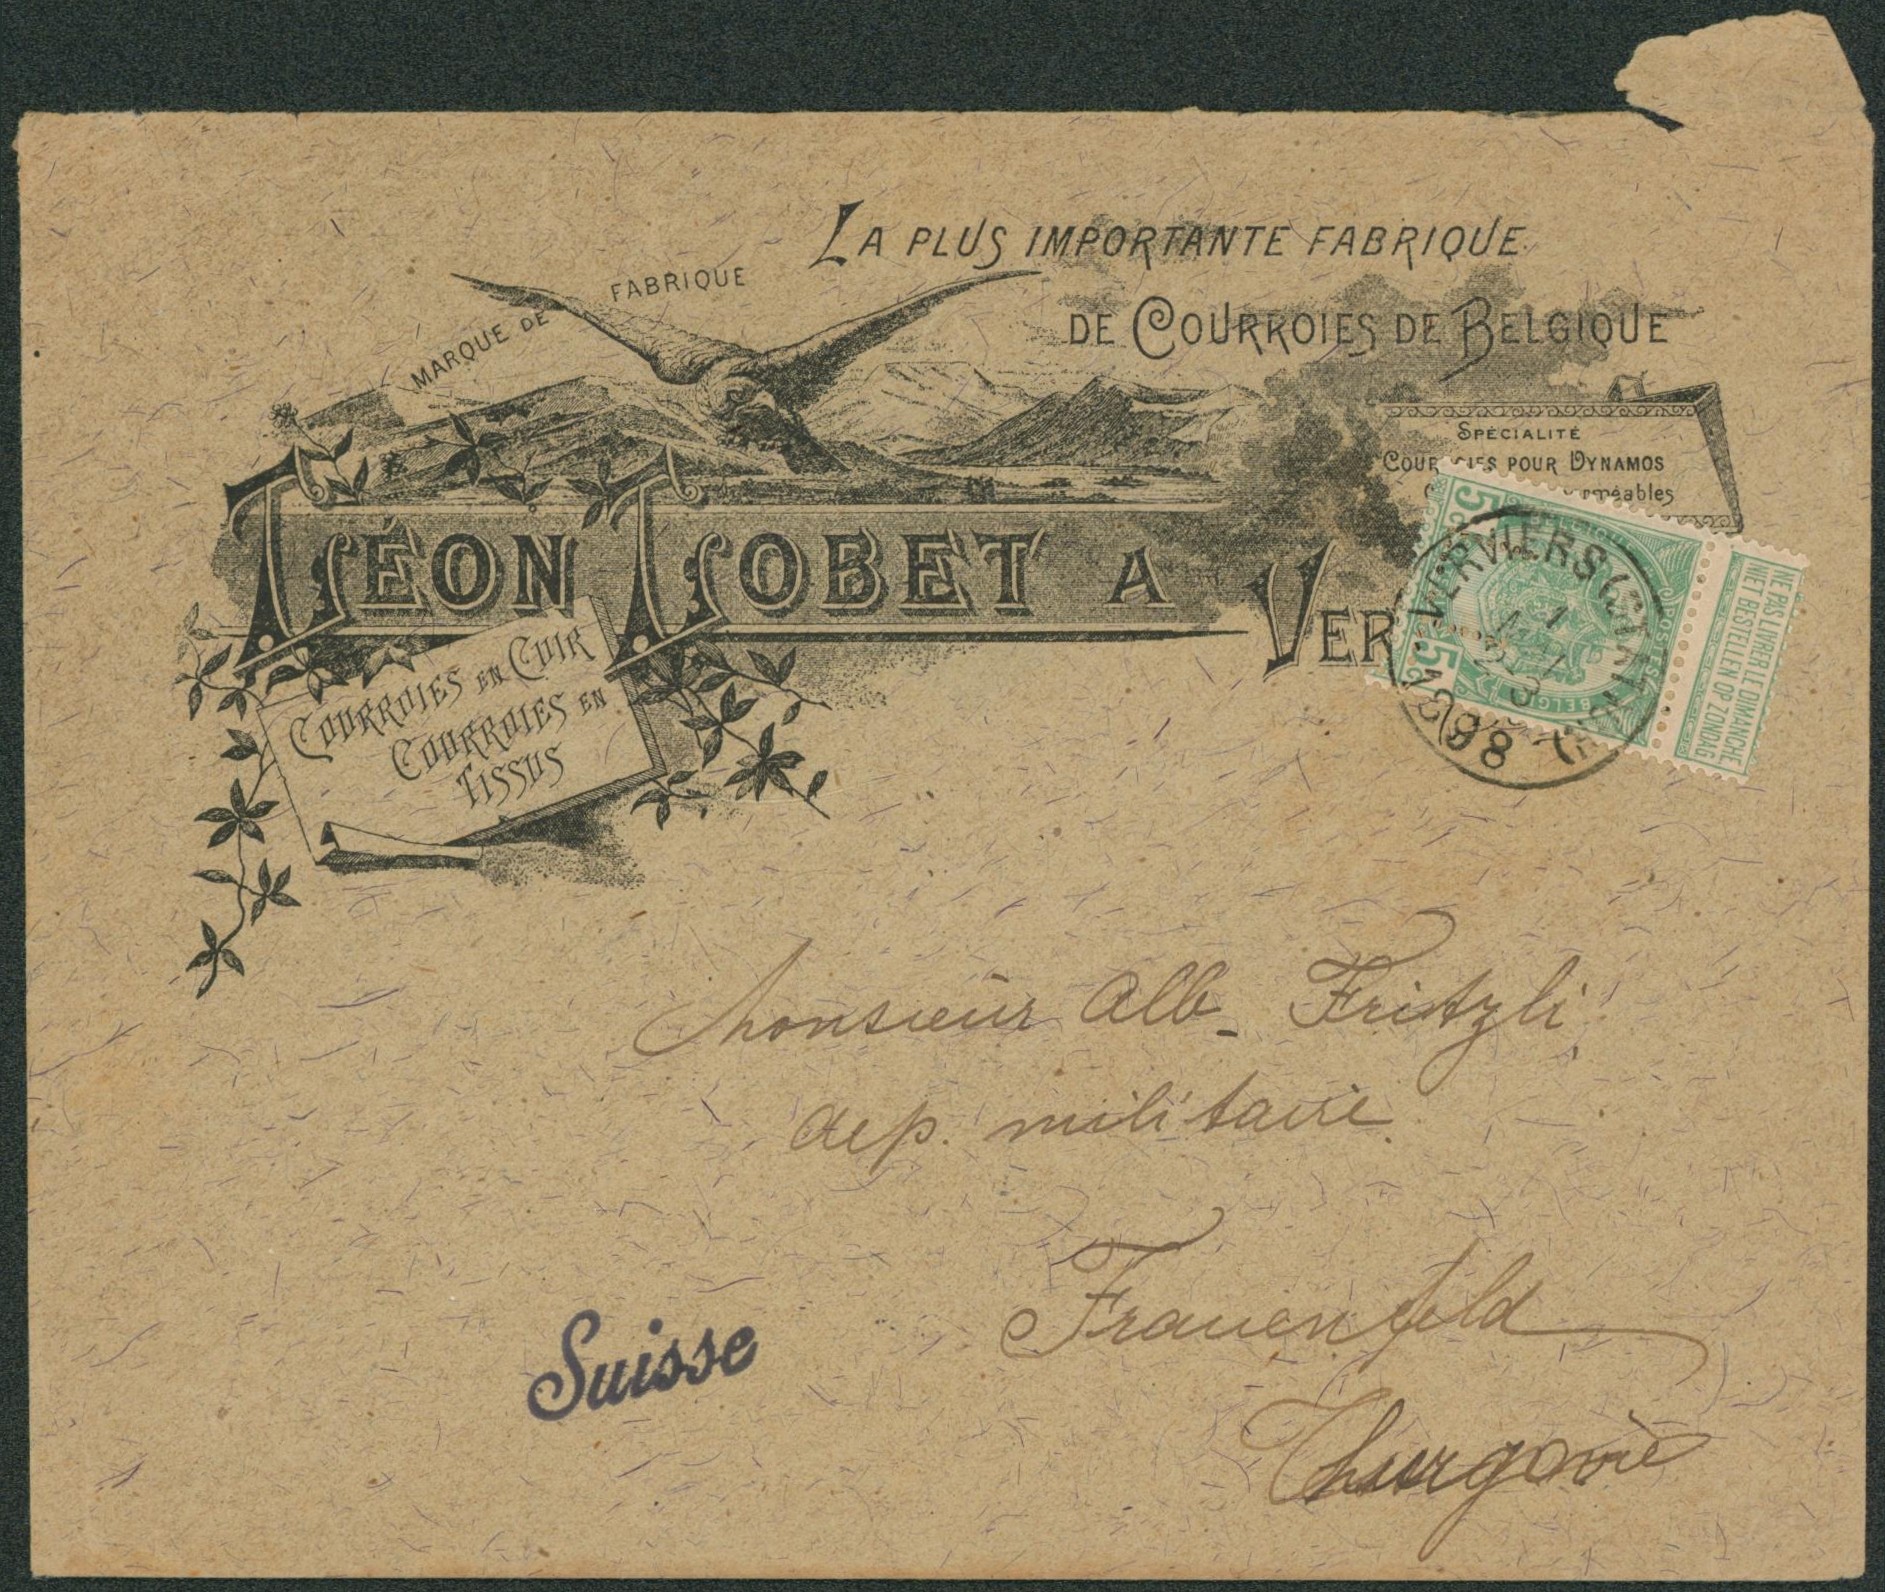 LA PLUS IMPORTANTE FABRIQUE
DE COURROIES DE BELGIQUE
MARQUE DE FABRIQUE
SPÉCIALITÉ
COURROIES POUR DYNAMOS
LÉON LOBET A VER
COURROIES EN CUIR
COURROIES EN
TISSUS
5
5
POSTES
BELGIQUE
NE PAS LIVRER LE DIMANCHE
NIET BESTELLEN OP ZONDAG
VERVIERS (STATION)
1898
Monsieur Alb. Fritzli
dep. militaire.
Frauenfeld
Thurgovie
Suisse